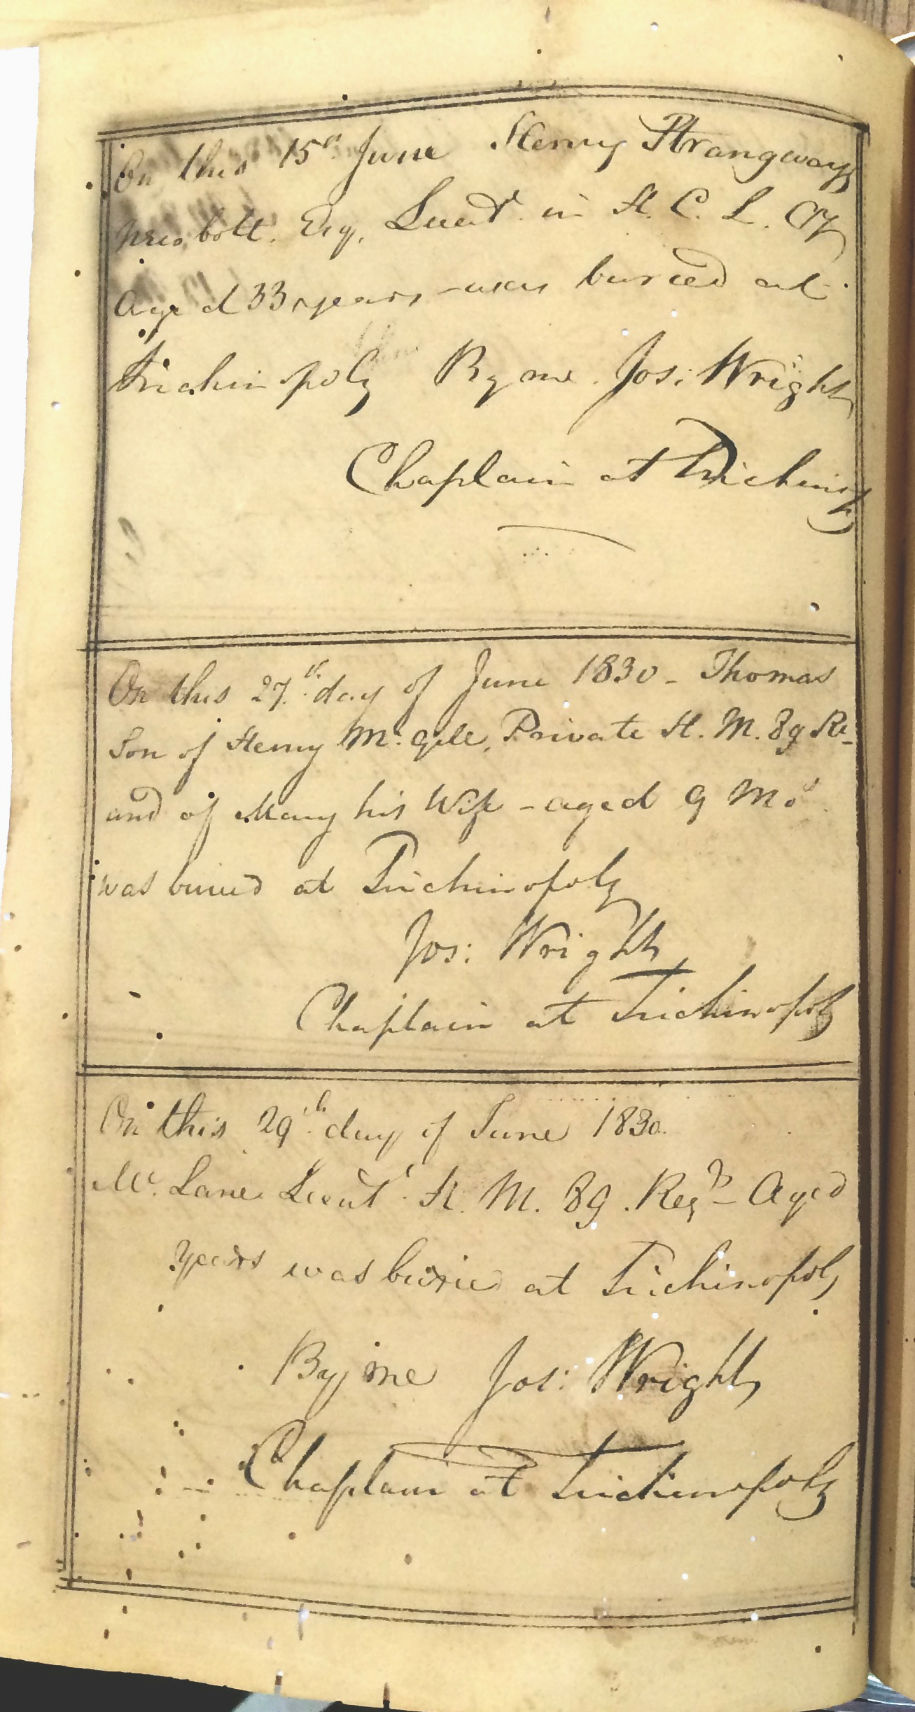 On this 15th June Henry Strangways
Newbolt. Esq. Lieut. in H. C. L. Cy
Aged 33 years was buried at
Trichinopoly By me Jos: Wright
Chaplain at Trichinopoly
On this 27th day of June 1830 - Thomas
Son of Henry Private H. M. 89 Re-
and of Mary his Wife - aged 9 Mos
was buried at Trichinopoly
Jos: Wright
Chaplain at Trichinopoly
On this 29th day of June 1830.
Mr. Lane Lieut H. M. 89. Regt - Aged
years was buried at Trichinopoly
By me Jos: Wright
Chaplain at Trichinopoly